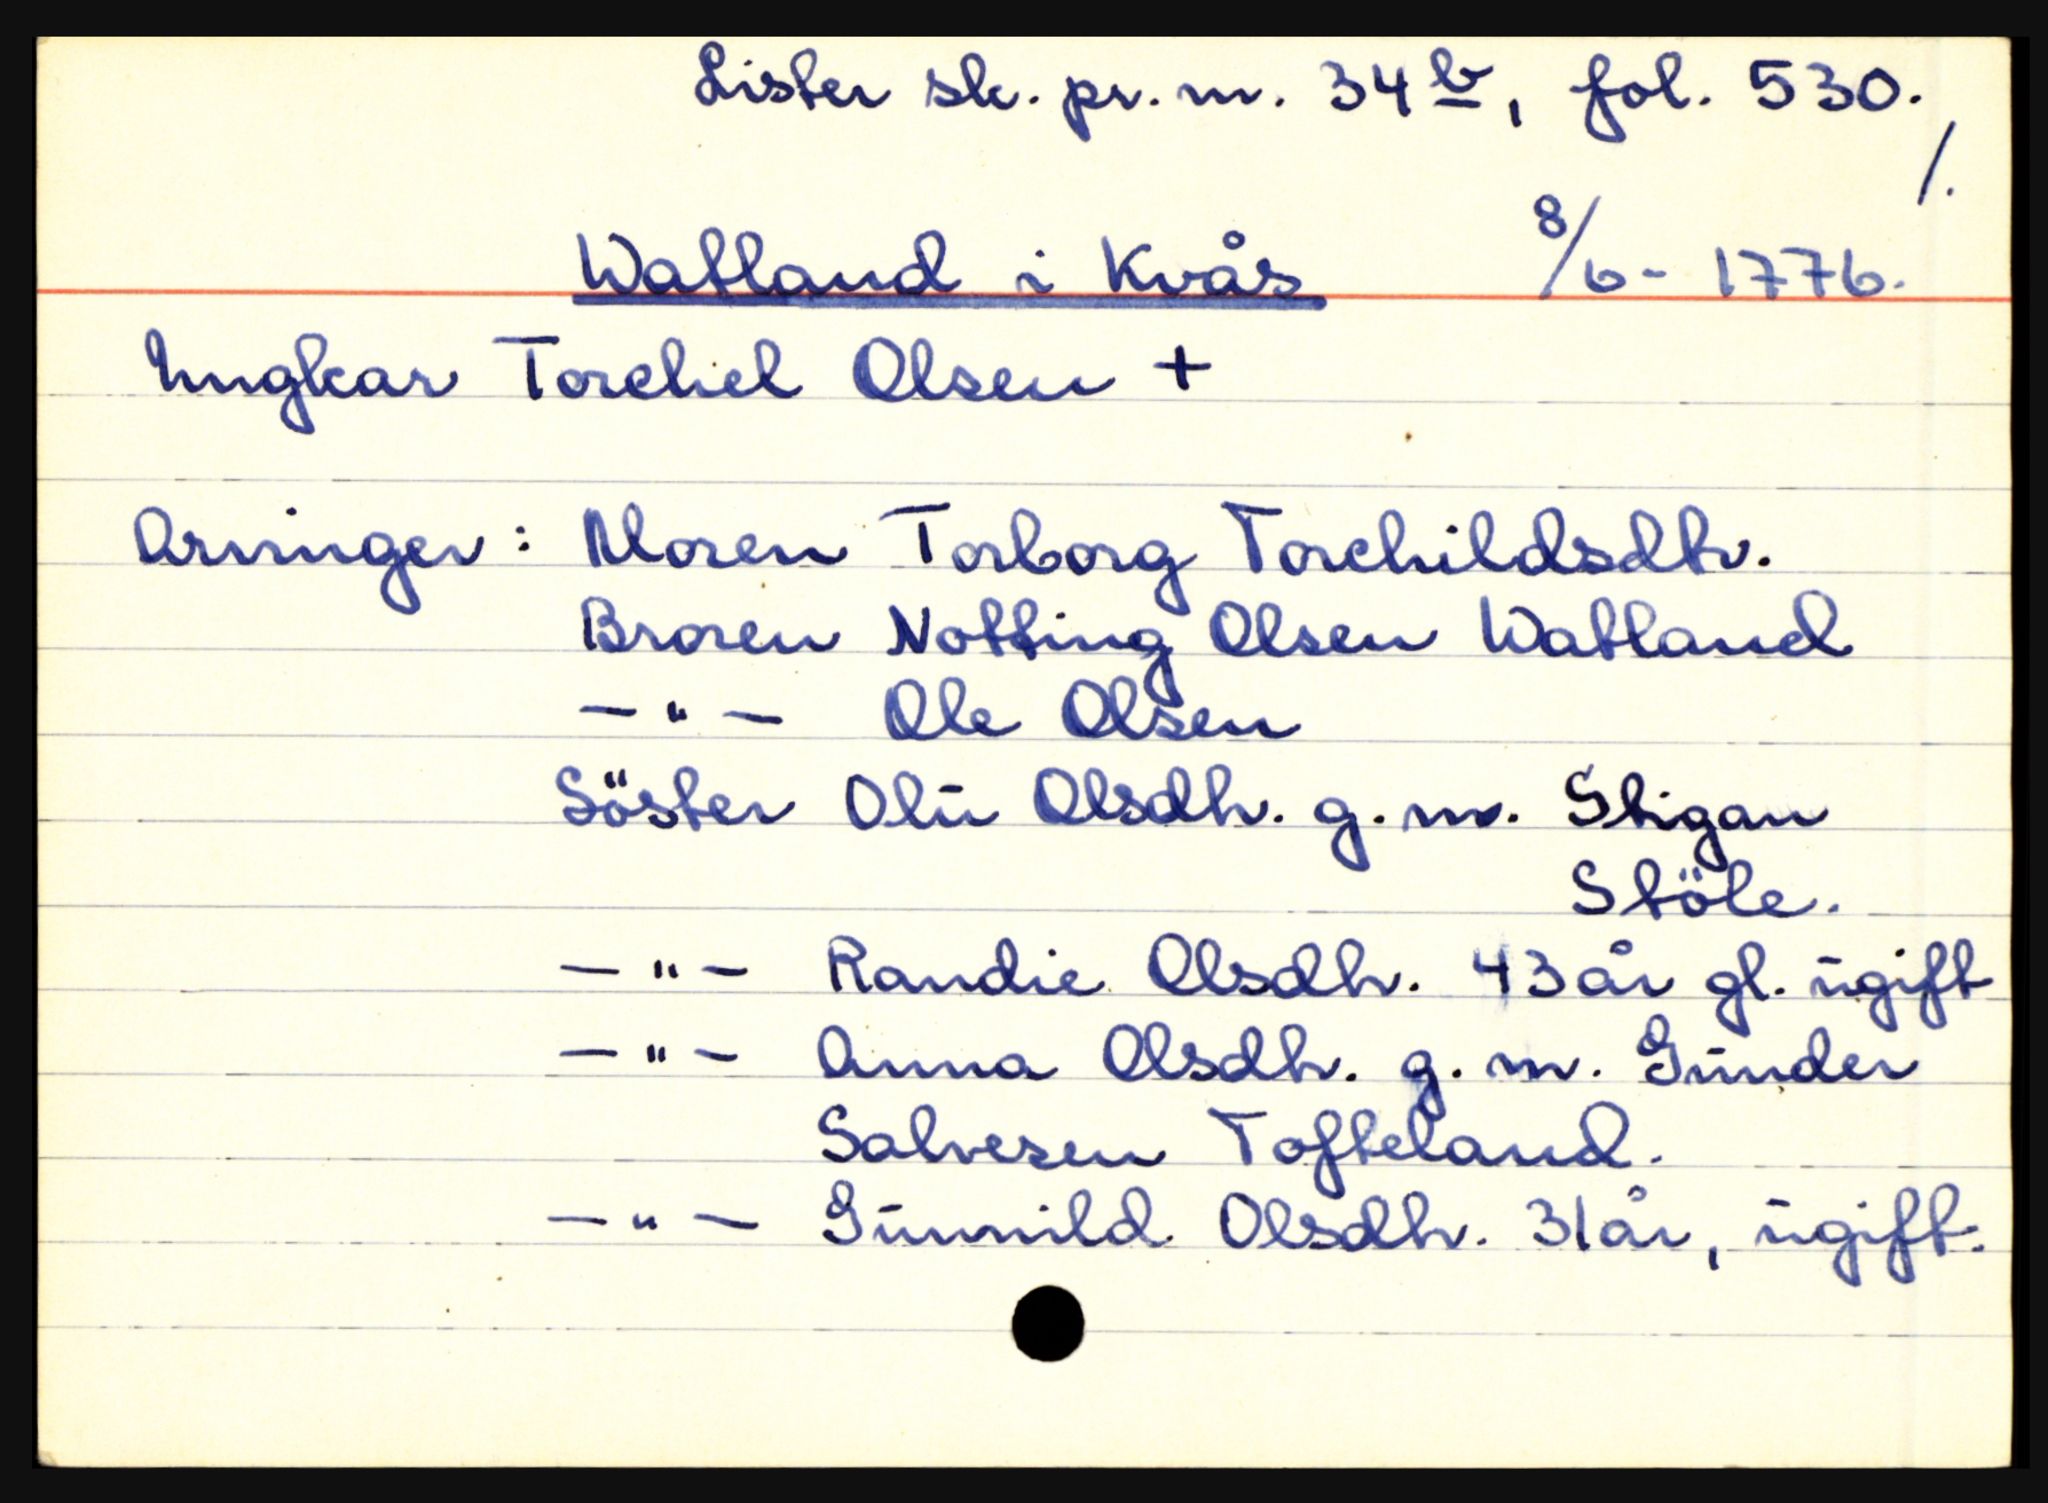 Lister sk. pr. m. 34b, fol. 530.
/.
Watland i Kvås 8/6 - 1776.
Ungkar Torchel Olsen +
Arvinger: Moren Torborg Torchildsdtr.
Broren Notting Olsen Watland
— " — Ole Olsen
Söster Olu Olsdtr. g. m. Stigan
Stöle.
— " — Randie Olsdtr. 43 år gl. ugift
— " — Anna Olsdtr. g. m. Gunder
Salvesen Tofteland.
— " — Gunnild Olsdtr. 31 år, ugift.